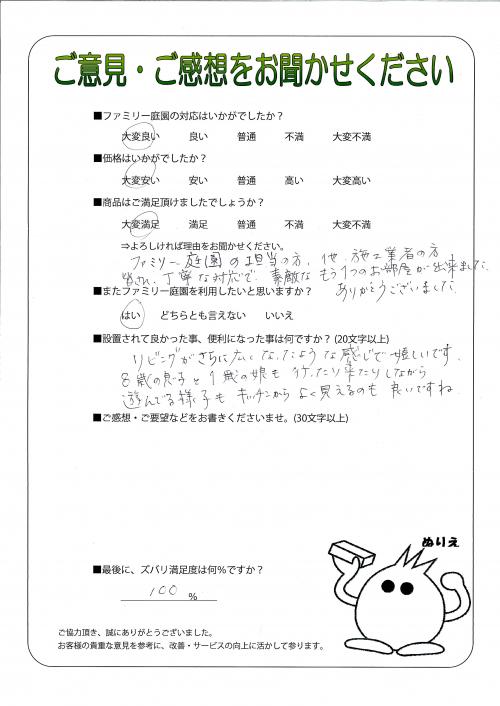 ご意見・ご感想をお聞かせください
■ファミリー庭園の対応はいかがでしたか？
大変良い 良い 普通 不満 大変不満
■価格はいかがでしたか？
大変安い 安い 普通 高い 大変高い
■商品はご満足頂けましたでしょうか？
大変満足 満足 普通 不満 大変不満
⇒よろしければ理由をお聞かせください。
ファミリー庭園の担当の方、他、施工業者の方
皆さん、丁寧な対応で、素敵なもう1つのお部屋が出来ました。
ありがとうございました。
■またファミリー庭園を利用したいと思いますか？
はい どちらとも言えない いいえ
■設置されて良かった事、便利になった事は何ですか？(20文字以上)
リビングがさらに広くなったような感じで嬉しいです。
8歳の息子と1歳の娘も行ったり来たりしながら
遊んでる様子もキッチンからよく見えるのも良いですね
■ご感想・ご要望などをお書きくださいませ。(30文字以上)
ぬりえ
■最後に、ズバリ満足度は何％ですか？
100 %
ご協力頂き、誠にありがとうございました。
お客様の貴重な意見を参考に、改善・サービスの向上に活かして参ります。